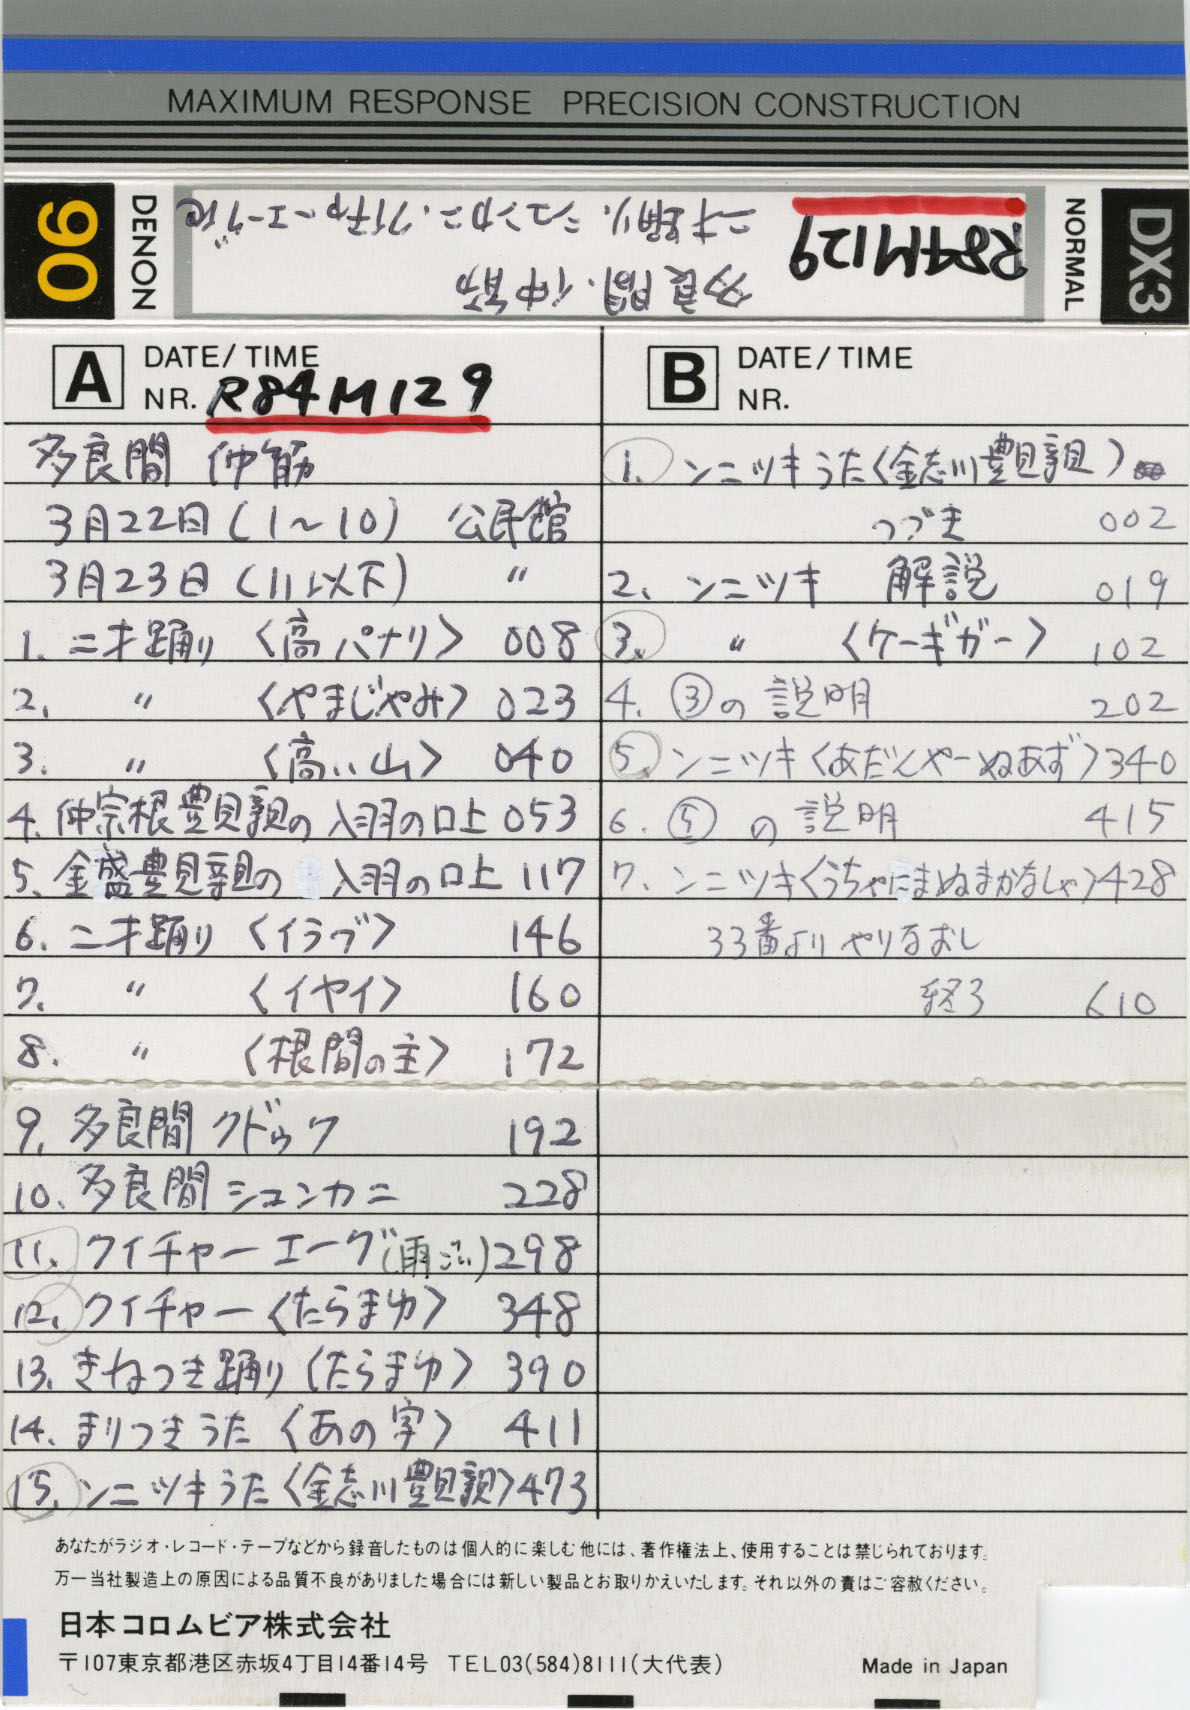 MAXIMUM RESPONSE PRECISION CONSTRUCTION
90
DENON
多良間・仲筋
二才踊り、シュンカニ、クイチャーエーグ他
R84M129
NORMAL
DX3
A DATE/TIME
NR. R84M129
多良間 仲筋
3月22日(1~10) 公民館
3月23日(11以下) 〃
1. 二才踊り〈高パナリ〉 008
2. 〃 〈やまじゃみ〉 023
3. 〃 〈高い山〉 040
4. 仲宗根豊見親の入羽の口上 053
5. 金盛豊見親の 入羽の口上 117
6. 二才踊り〈イラブ〉 146
7. 〃 〈イヤイ〉 160
8. 〃 〈根間の主〉 172
9. 多良間クドゥク 192
10. 多良間シュンカニ 228
11. クイチャーエーグ(雨ごい) 298
12. クイチャー〈たらまゆ〉 348
13. きねつき踊り〈たらまゆ〉 390
14. まりつきうた〈あの字〉 411
15. ンニツキうた〈金志川豊見親〉 473
B DATE/TIME
NR.
1. ンニツキうた〈金志川豊見親〉
つづき 002
2. ンニツキ 解説 019
3. 〃 〈ケーギガー〉 102
4. ③の説明 202
5. ンニツキ〈あだんやーぬあず〉 340
6. ⑤の説明 415
7. ンニツキ〈うちゃたまぬまかなしゃ〉 428
33番よりやりなおし
終了 610
あなたがラジオ・レコード・テープなどから録音したものは個人的に楽しむ他には、著作権法上、使用することは禁じられております。
万一当社製造上の原因による品質不良がありました場合には新しい製品とお取りかえいたします。それ以外の責はご容赦ください。
日本コロムビア株式会社
〒107東京都港区赤坂4丁目14番14号 TEL03(584)8111(大代表)
Made in Japan